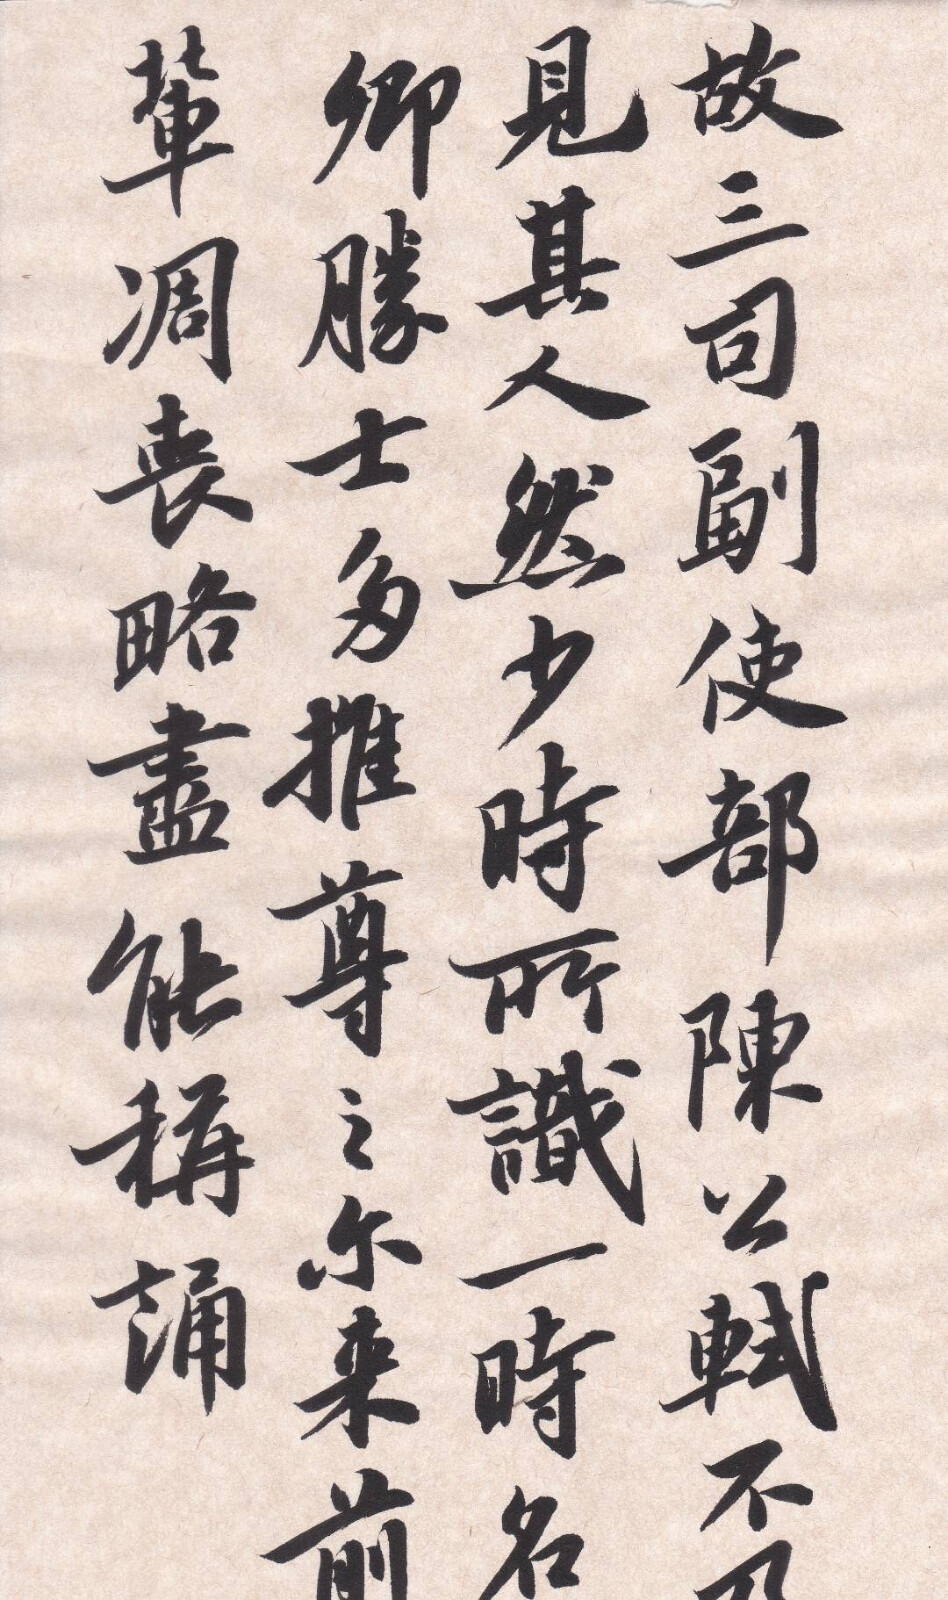 故三司副使部陳公軾不及
見其人然少時所識一時名
卿勝士多推尊之尔来前
輩凋喪略盡能稱誦